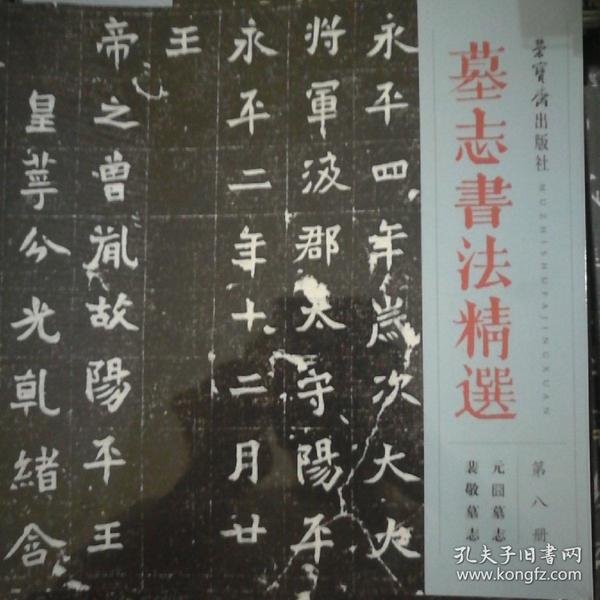 荣宝斋出版社
墓志書法精選
MUZHISHUFAJINGXUAN
第八册
元囧墓志
裴敬墓志
永平四年歲次大火
將軍汲郡太守陽平
永平二年十二月廿
王
帝之曾胤故陽平王
皇萼分光乹緒含
孔夫子旧书网
www.kongfz.com